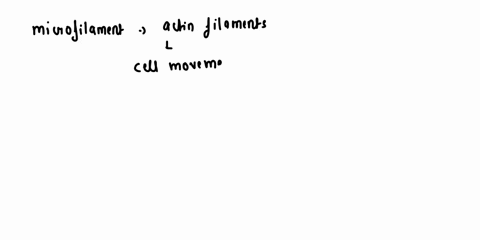 microfilament -> actin filaments
cell moveme